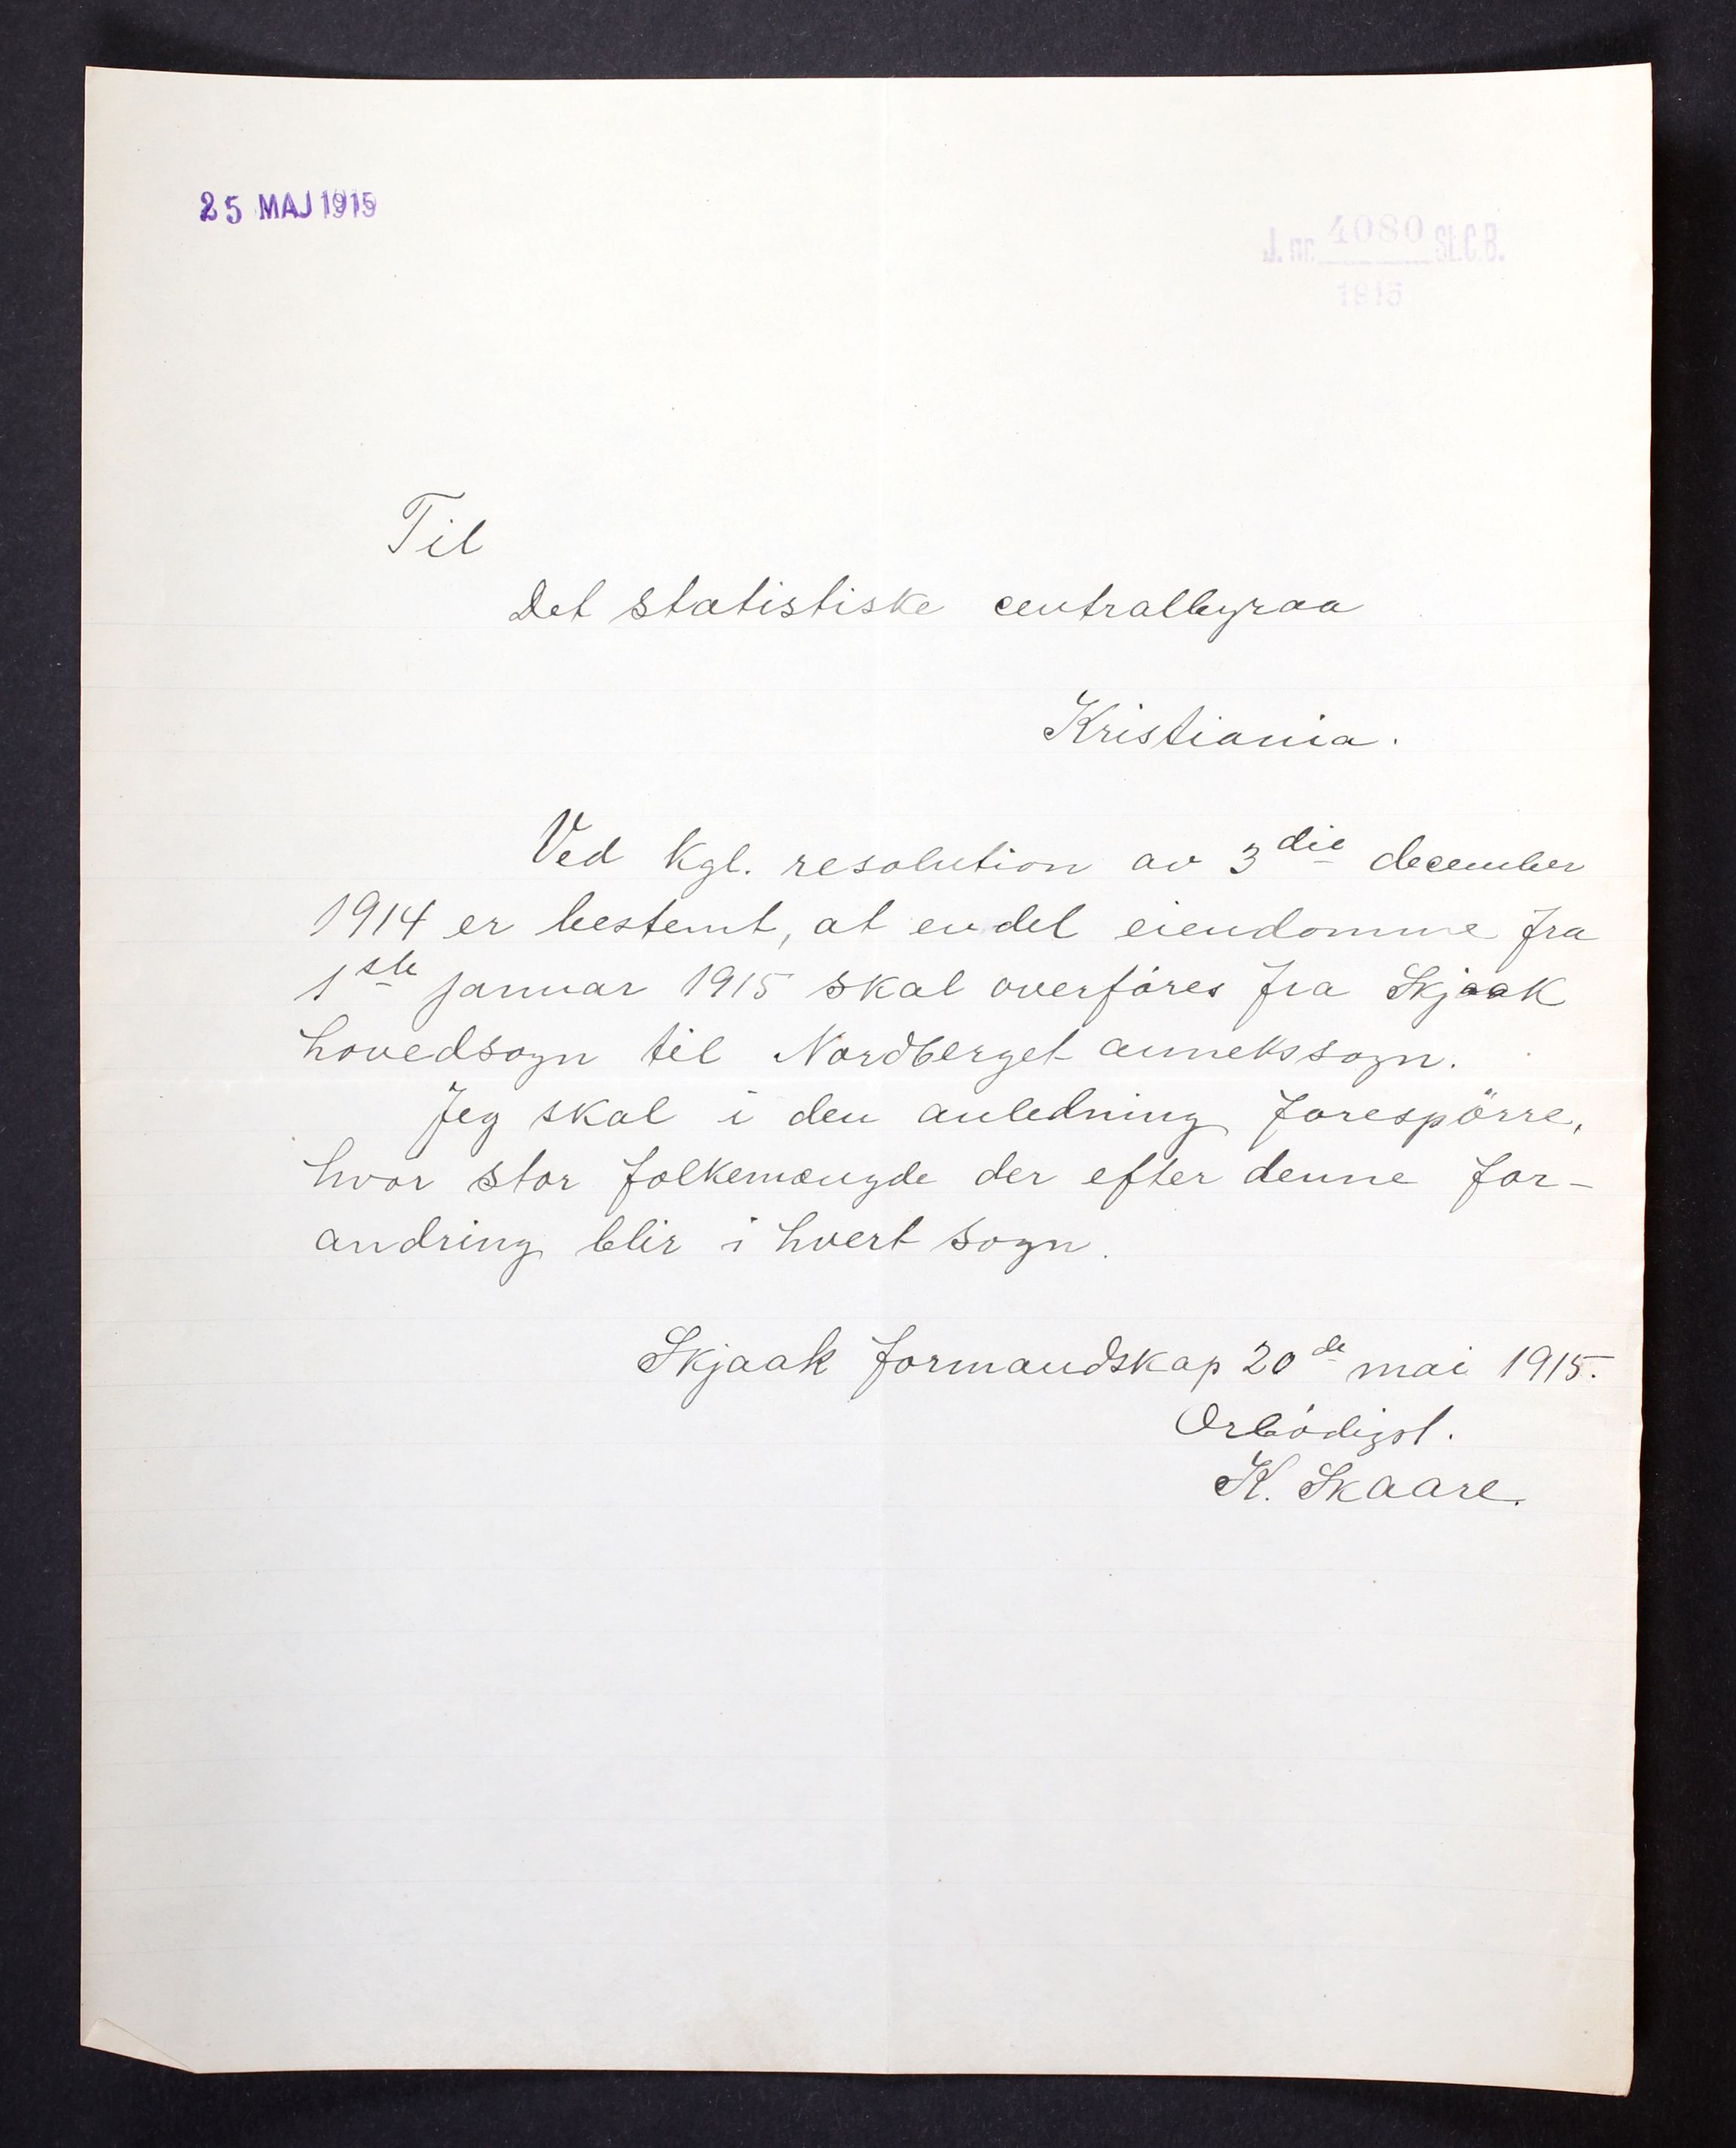 25 MAJ 1915
J. nr. 4080 St.C.B.
1915
Til
Det statistiske centralbyraa
Kristiania.
Ved kgl. resolution av 3die december
1914 er bestemt, at en del eiendomme fra
1ste januar 1915 skal overföres fra Skjaak
hovedsogn til Nordberget annekssogn.
Jeg skal i den anledning forespörre,
hvor stor folkemængde der efter denne for-
andring blir i hvert sogn.
Skjaak formandskap 20de mai 1915.
Orbödigst.
K. Skaare.